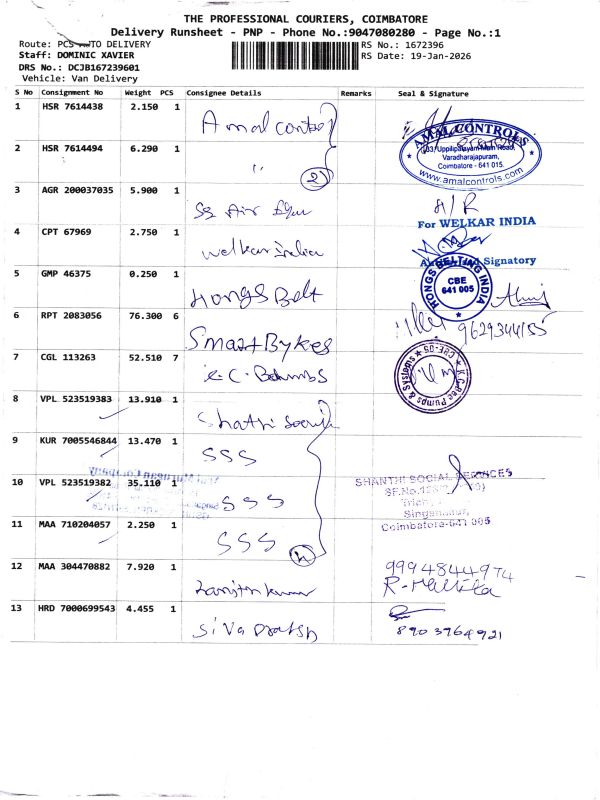 THE PROFESSIONAL COURIERS, COIMBATORE
Delivery Runsheet - PNP - Phone No.:9047080280 - Page No.:1
Route: PCS AUTO DELIVERY
RS No.: 1672396
Staff: DOMINIC XAVIER
RS Date: 19-Jan-2026
DRS No.: DCJB167239601
Vehicle: Van Delivery
S No Consignment No Weight PCS Consignee Details Remarks Seal & Signature
1 HSR 7614438 2.150 1 Amal control
AMAL CONTROLS
Uppilipalayam Main Road,
Varadharajapuram,
Coimbatore - 641 015.
www.amalcontrols.com
2 HSR 7614494 6.290 1 " 2
3 AGR 200037035 5.900 1 SS Air
For WELKAR INDIA
4 CPT 67969 2.750 1 Welkar India
Signatory
5 GMP 46375 0.250 1 Hongs Belt
HONGS BELTING INDIA
CBE
641 005
6 RPT 2083056 76.300 6 Smart Bykes
9629344155
7 CGL 113263 52.510 7 K.C.
Pumps & CBE-05
8 VPL 523519383 13.910 1 Shathi
9 KUR 7005546844 13.470 1 SSS
10 VPL 523519382 35.110 1 SSS
SHANTHI SOCIAL SERVICES
SF.No.
Trich
Singanallur,
Coimbatore-641 005
11 MAA 710204057 2.250 1 SSS 4
12 MAA 304470882 7.920 1 Ranjith kumar
9994844974
R-Mallika
13 HRD 7000699543 4.455 1 Siva Prakash
8903964921